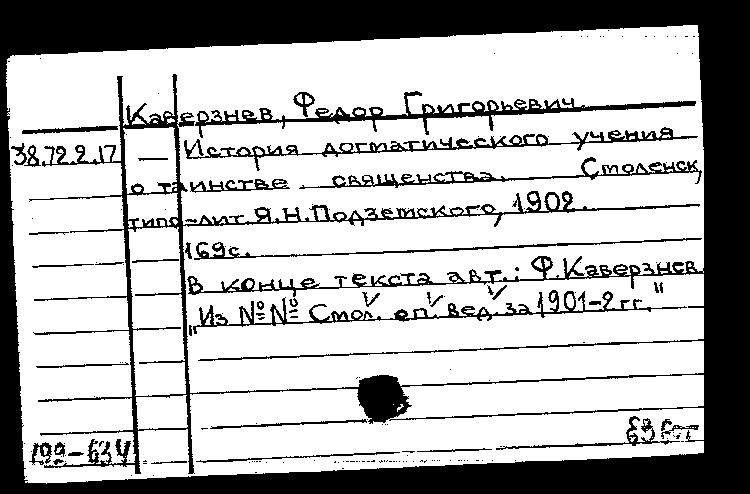 Каверзнев, Федор Григорьевич.
38.72.2.17 — История догматического учения
о таинстве священства. Смоленск,
типо-лит. Я.Н.Подземского, 1902.
169с.
В конце текста авт.: Ф.Каверзнев.
„Из №№ Смол. еп. вед. за 1901-2 гг."
199-634